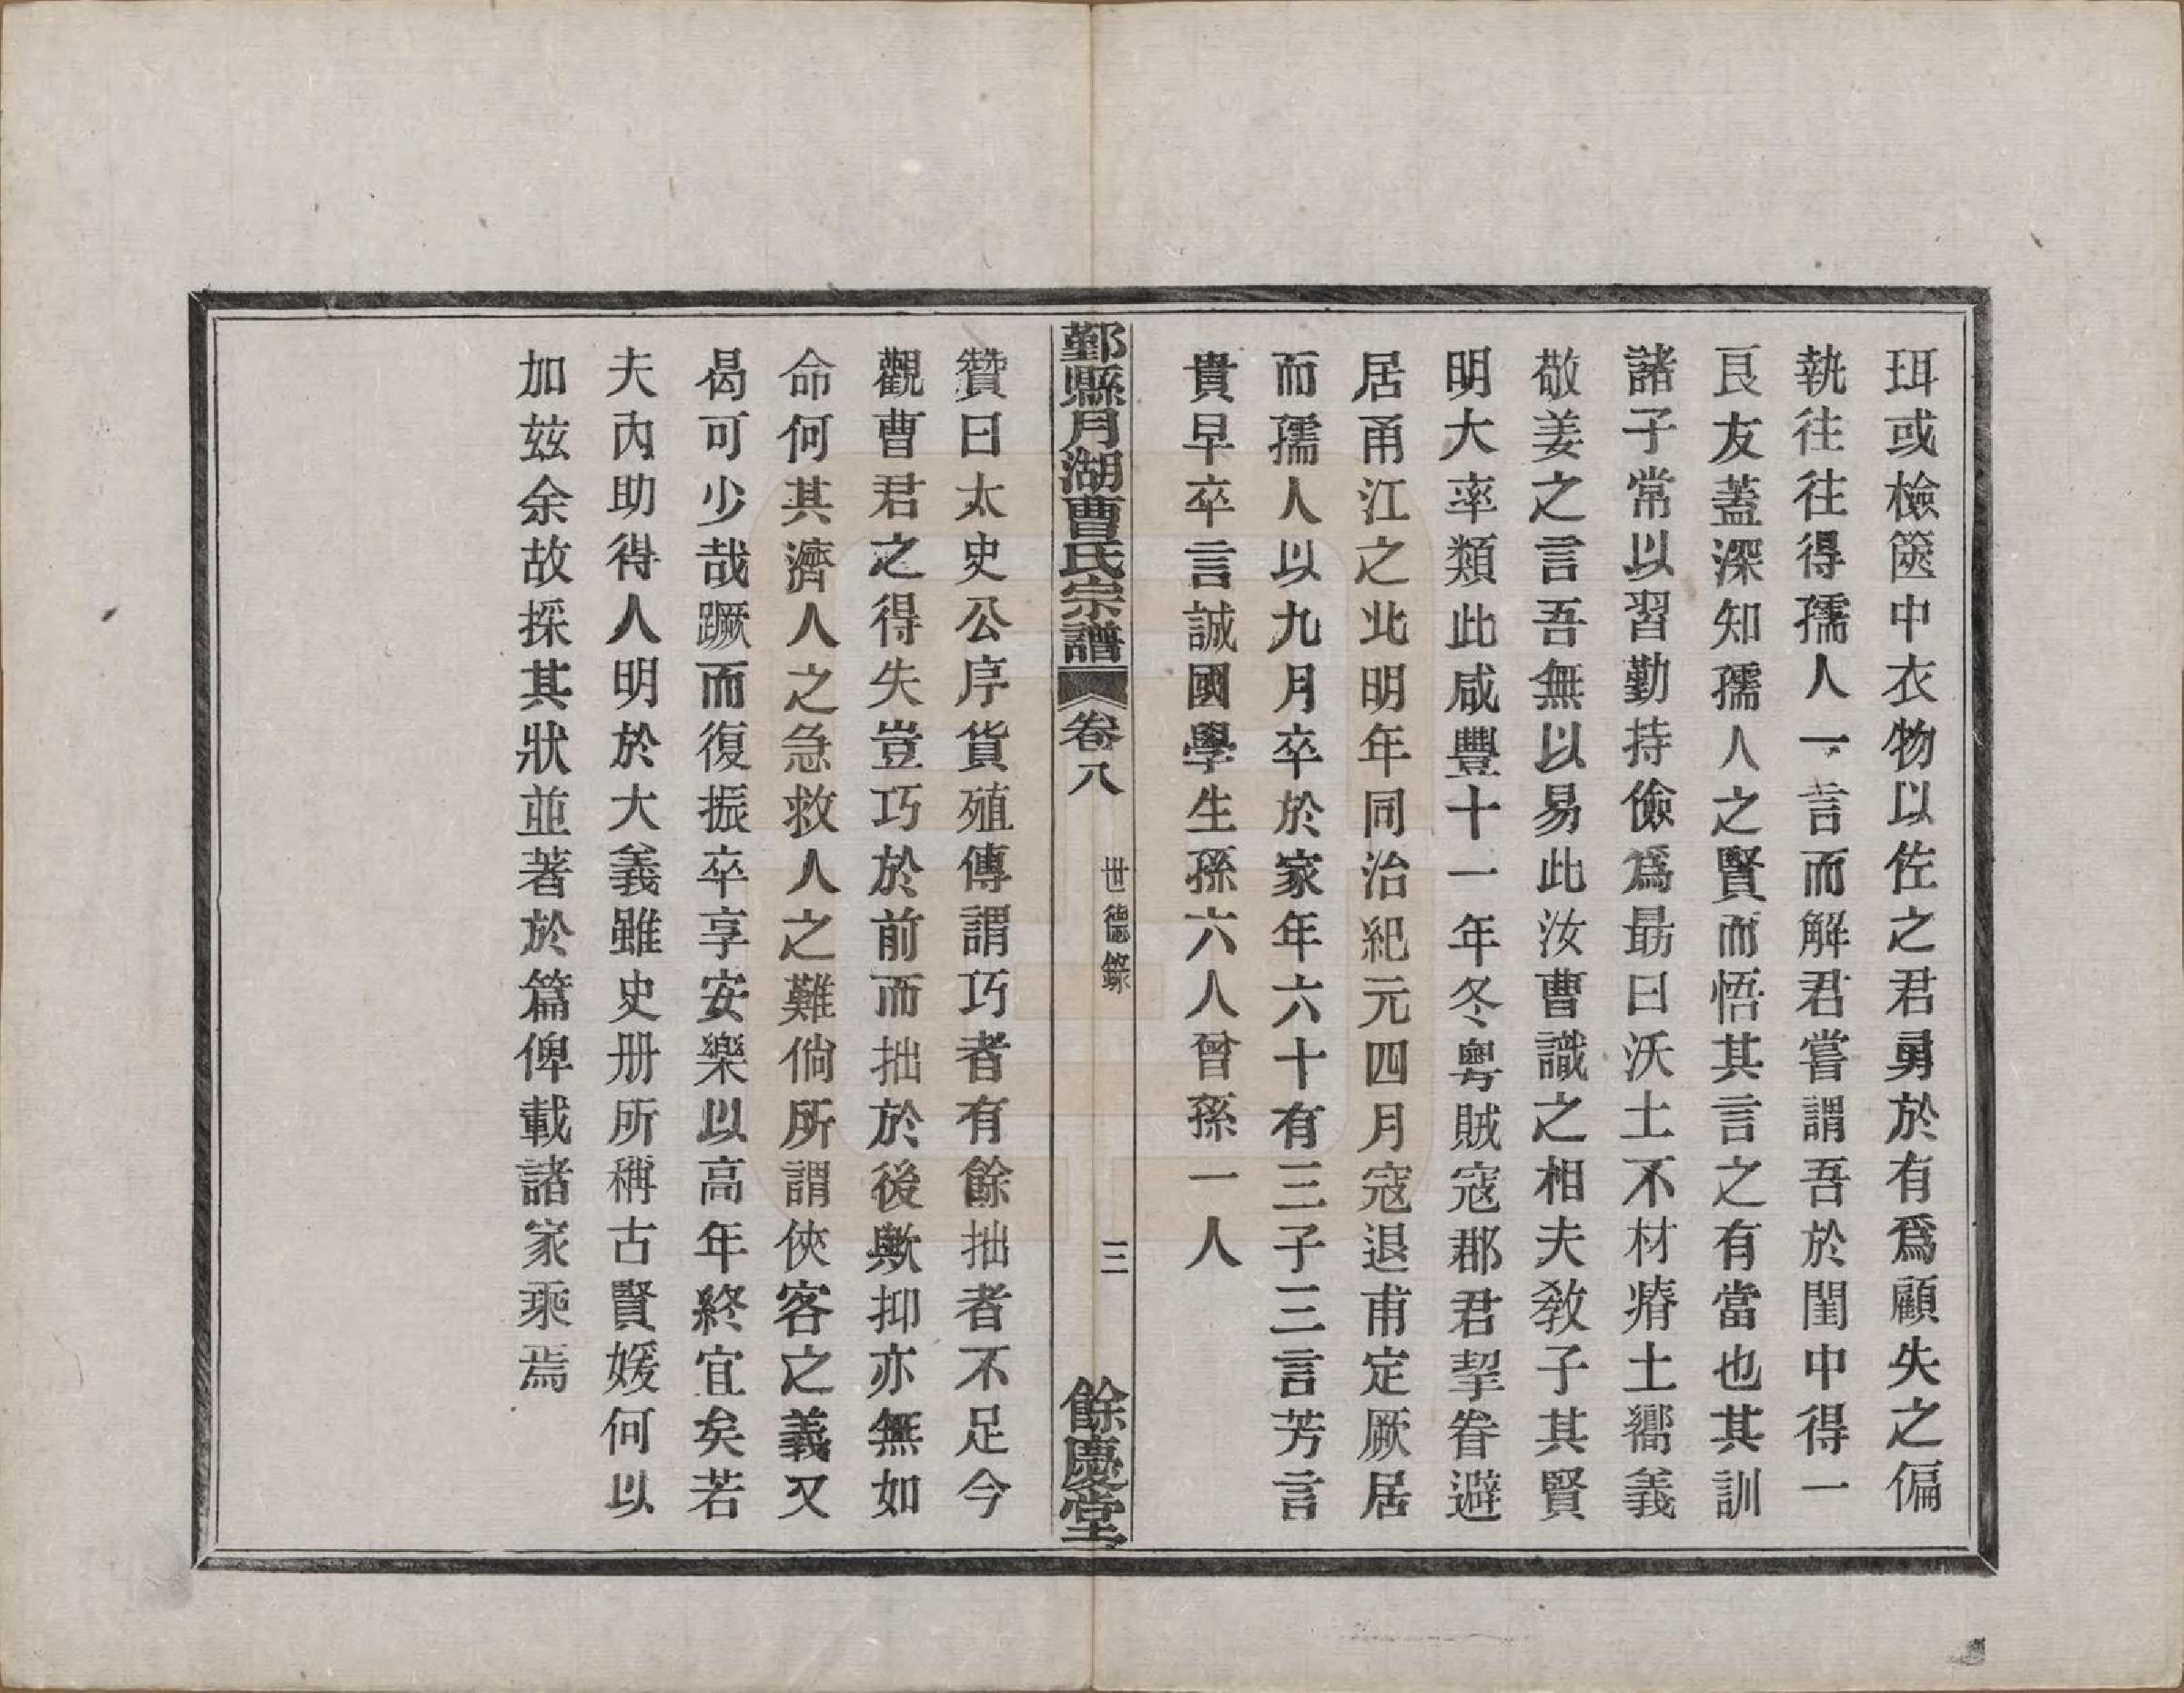 珥或檢篋中衣物以佐之君勇於有爲顧失之偏
執往往得孺人一言而解君嘗謂吾於閨中得一
良友蓋深知孺人之賢而悟其言之有當也其訓
諸子常以習勤持儉爲勗曰沃土不材瘠土嚮義
敬姜之言吾無以易此汝曹識之相夫敎子其賢
明大率類此咸豐十一年冬粵賊寇郡君挈眷避
居甬江之北明年同治紀元四月寇退甫定厥居
而孺人以九月卒於家年六十有三子三言芳言
貴早卒言誠國學生孫六人曾孫一人
鄞縣月湖曹氏宗譜 卷八 世德錄 三 餘慶堂
贊曰太史公序貨殖傳謂巧者有餘拙者不足今
觀曹君之得失豈巧於前而拙於後歟抑亦無如
命何其濟人之急救人之難倘所謂俠客之義又
曷可少哉蹶而復振卒享安樂以高年終宜矣若
夫內助得人明於大義雖史册所稱古賢媛何以
加兹余故採其狀並著於篇俾載諸家乘焉